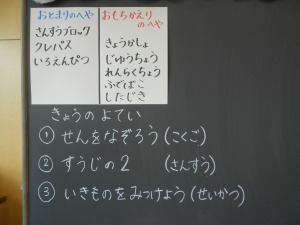 おとまりのへや
さんすうブロック
クレパス
いろえんぴつ
おもちかえり
のへや
きょうかしょ
じゆうちょう
れんらくちょう
ふでばこ
したじき
きょうのよてい
① せんをなぞろう(こくご)
② すうじの2 (さんすう)
③ いきものをみつけよう(せいかつ)